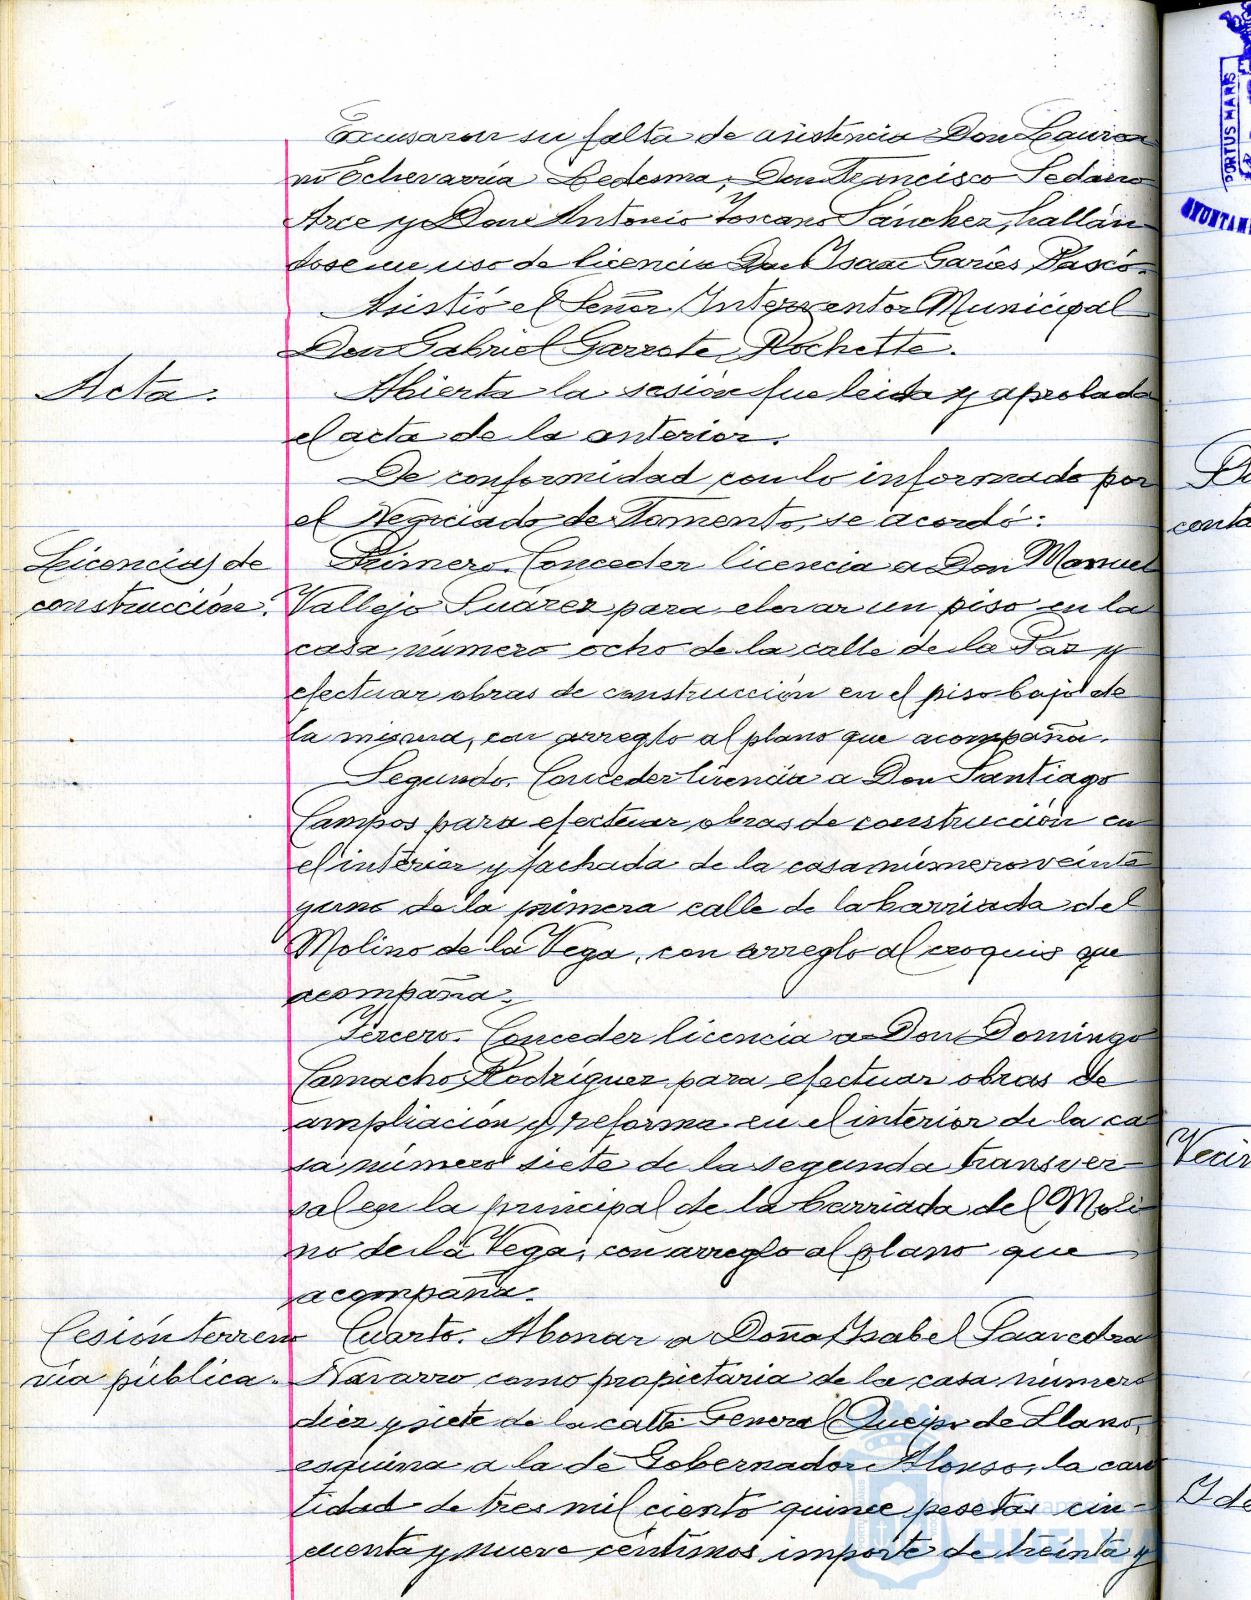 Excusaron su falta de asistencia Don Laurea
no Echevarría Ledesma, Don Francisco Sedano
Arce y Don Antonio Toscano Sánchez, hallán-
dose en uso de licencia Don Isaac Garcés Pascó.
Asistió el Señor Interventor Municipal
Don Gabriel Garrote Rochette.
Acta.
Abierta la sesión fue leida y aprobada
el acta de la anterior.
De conformidad con lo informado por
el Negociado de Fomento, se acordó:
Licencias de
construcción.
Primero. Conceder licencia a Don Manuel
Vallejo Suárez para elevar un piso en la
casa número ocho de la calle de la Paz y
efectuar obras de construcción en el piso bajo de
la misma, con arreglo al plano que acompaña.
Segundo. Conceder licencia a Don Santiago
Campos para efectuar obras de construcción en
el interior y fachada de la casa número veinte
y uno de la primera calle de la barriada del
Molino de la Vega, con arreglo al croquis que
acompaña.
Tercero. Conceder licencia a Don Domingo
Camacho Rodríguez para efectuar obras de
ampliación y reforma en el interior de la ca
sa número siete de la segunda transver-
sal en la principal de la barriada del Moli-
no de la Vega, con arreglo al plano que
acompaña.
Cesión terreno
vía pública.
Cuarto. Abonar a Doña Isabel Saavedra
Navarro como propietaria de la casa número
diez y siete de la calle General Queipo de Llano,
esquina a la de Gobernador Alonso, la can
tidad de tres mil ciento quince pesetas cin-
cuenta y nueve céntimos importe de treinta y
PORTUS MARIS
AYUNTAM
conta
Vecin
Ayuntamiento
HUELVA